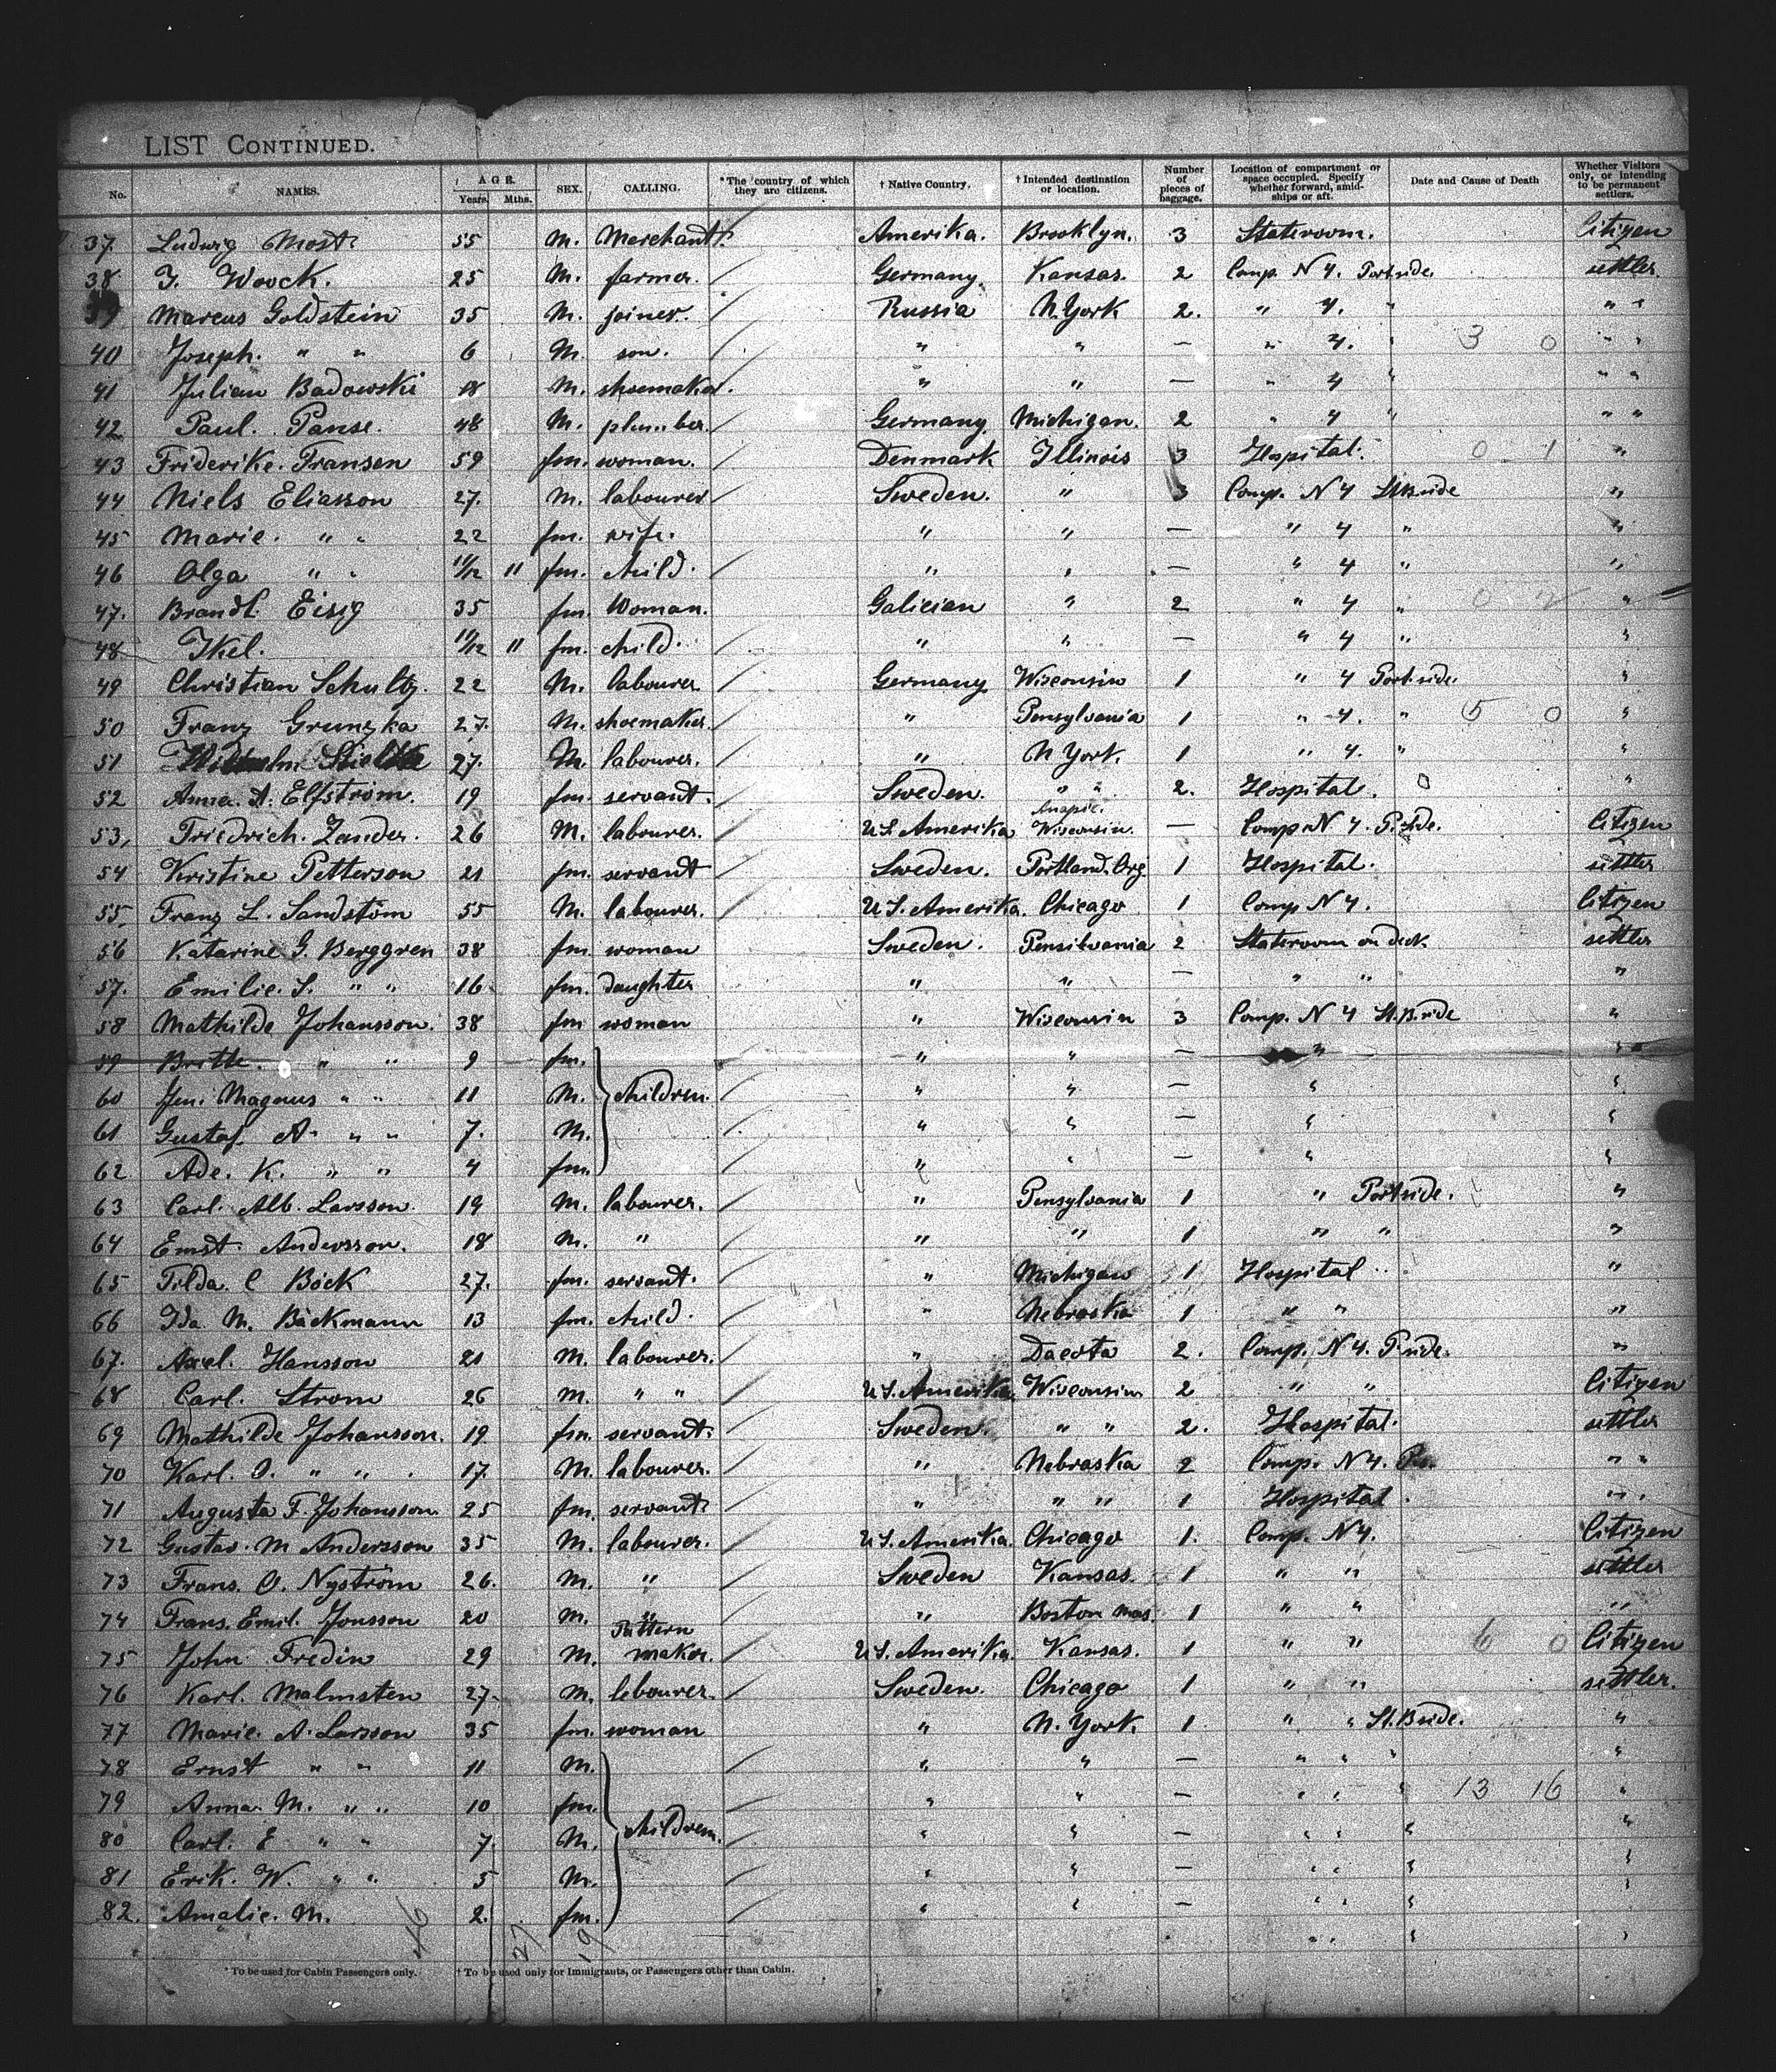 LIST CONTINUED.
No. NAMES. AGE. Years. Mths. SEX. CALLING. *The country of which they are citizens. † Native Country. † Intended destination or location. Number of pieces of baggage. Location of compartment or space occupied. Specify whether forward, amidships or aft. Date and Cause of Death Whether Visitors only, or intending to be permanent settlers.
37. Ludwig Most. 55 M. Merchant. Amerika. Brooklyn. 3 Stateroom. Citizen
38 J. Woock. 25 M. farmer. Germany. Kansas. 2 Comp. N 4. Portside. settler.
39 Marcus Goldstein 35 M. joiner. Russia N. York 2. " 4. " " "
40 Joseph. " " 6 M. son. " " — " 4. " 3 0 " "
41 Julian Badowski 18 M. shoemaker. " " — " 4 " " "
42 Paul. Panse. 48 M. plumber. Germany. Michigan. 2 " 4 " " "
43 Friderike. Fransen 59 fm. woman. Denmark Illinois 3 Hospital. 0 1 "
44 Niels Eliasson 27. M. labourer Sweden. " 3 Comp. N 4 St.B.side "
45 Marie. " " 22 fm. wife. " " — " 4 " "
46 Olga " " 11/12 11 fm. child. " " — " 4 " "
47. Brandl. Eisig 35 fm. Woman. Galician " 2 " 4 " 0 2 "
48 Ikel. 11/12 11 fm. child. " " — " 4 " "
49 Christian Schultz. 22 M. labourer Germany Wisconsin 1 " 4 Portside. "
50 Franz Grunzka 27. M. shoemaker. " Pensylvania 1 " 4. " 5 0 "
51 27. M. labourer. " N York. 1 " 4. " "
52 Anna. A. Elfström. 19 fm. servant. Sweden. " " 2. Hospital. 0 "
53, Friedrich. Zander. 26 M. labourer. U.S. Amerika Wisconsin. — Comp. N 4. P.side. Citizen
54 Kristine Petterson 21 fm. servant Sweden. Portland. Org 1 Hospital. settler
55, Franz L. Sandstöm 55 M. labourer. U.S. Amerika. Chicago 1 Comp N 4. Citizen
56 Katarine G. Berggren 38 fm. woman Sweden. Pensilvania 2 Stateroom on deck settler
57. Emilie. S. " " 16. fm. daughter " " — " " "
58 Mathilde Johansson. 38 fm woman " Wisconsin 3 Comp. N 4 St.B.side "
59 Britte. " " 9 fm. " " — " "
60 Magnus " " 11 M. children. " " — " "
61 Gustaf. A. " " 7. M. " " — " "
62 Ade. K. " " 4 fm. " " — " "
63 Carl. Alb. Larsson. 19 M. labourer. " Pensylvania 1 " Portside. "
64 Ernst. Andersson. 18 M. " " " 1 " " "
65 Tilda. C Böck 27. fm. servant. " Michigan 1 Hospital "
66 Ida. M. Bäckmann 13 fm. child. " Nebraska 1 " " "
67. Axel. Hansson 21 M. labourer. " Dacota 2. Comp. N 4. P.side. "
68 Carl. Strom 26 M. " " U.S. Amerika Wisconsin 2 " " Citizen
69 Mathilde Johansson. 19 fm. servant. Sweden. " " 2. Hospital. settler
70 Karl. O. " " 17. M. labourer. " Nebraska 2 Comp. N 4. " "
71 Augusta F. Johansson 25 fm. servant. " " " 1 Hospital. " "
72 Gustav. M Andersson 35 M. labourer. U.S. Amerika. Chicago 1. Comp. N 4. Citizen
73 Frans. O. Nyström 26. M. " Sweden Kansas. 1 " " settler
74 Frans. Emil. Jonsson 20 M. " " Boston Mas. 1 " " "
75 John Fredin 29 M. Pattern maker. U.S. Amerika. Kansas. 1 " " 6 0 Citizen
76 Karl. Malmsten 27. M. lebourer. Sweden. Chicago 1 " " settler.
77 Marie. A. Larsson 35 fm. woman " N. York. 1. " " St.B.side. "
78 Ernst " " 11 M. " " — " " " "
79 Anna. M. " " 10 fm. " " — " " " 13 16 "
80 Carl. E " " 7. M. children. " " — " " " "
81 Erik. W. " " 5 M. " " — " " " "
82. Amalie. M. 2. fm. " " — " " " "
46 27 19
* To be used for Cabin Passengers only. † To be used only for Immigrants, or Passengers other than Cabin.